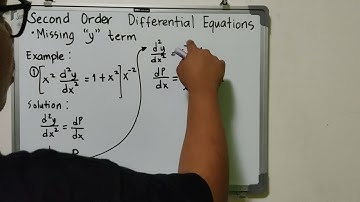 Second Order Differential Equations
• Missing "y" term
Example:
① [x² d²y/dx² = 1 + x²] x⁻²
Solution:
d²y/dx² = dP/dx
d²y/dx²
dP/dx =